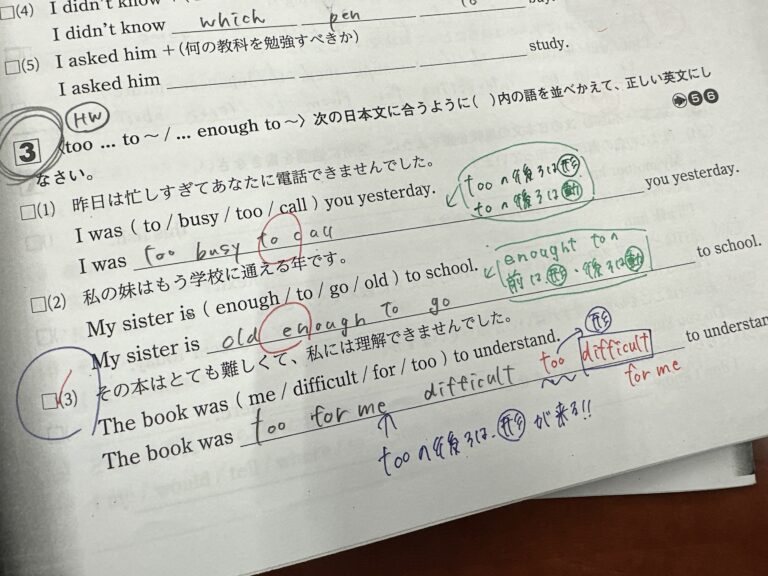 □(4) I didn't know
I didn't know which pen to
□(5) I asked him +(何の教科を勉強すべきか)
I asked him study.
HW
3 〈too … to ~ / … enough to ~〉次の日本文に合うように( )内の語を並べかえて、正しい英文にし
なさい。 ➔❺❻
□(1) 昨日は忙しすぎてあなたに電話できませんでした。
I was ( to / busy / too / call ) you yesterday.
I was too busy to call you yesterday.
tooの後ろは形
toの後ろは動
□(2) 私の妹はもう学校に通える年です。
My sister is ( enough / to / go / old ) to school.
My sister is old enough to go to school.
enought toの
前は形・後ろは動
□(3) その本はとても難しくて、私には理解できませんでした。
The book was ( me / difficult / for / too ) to understand.
The book was too for me difficult to understan
形
too difficult
for me
tooの後ろは、形が来る!!